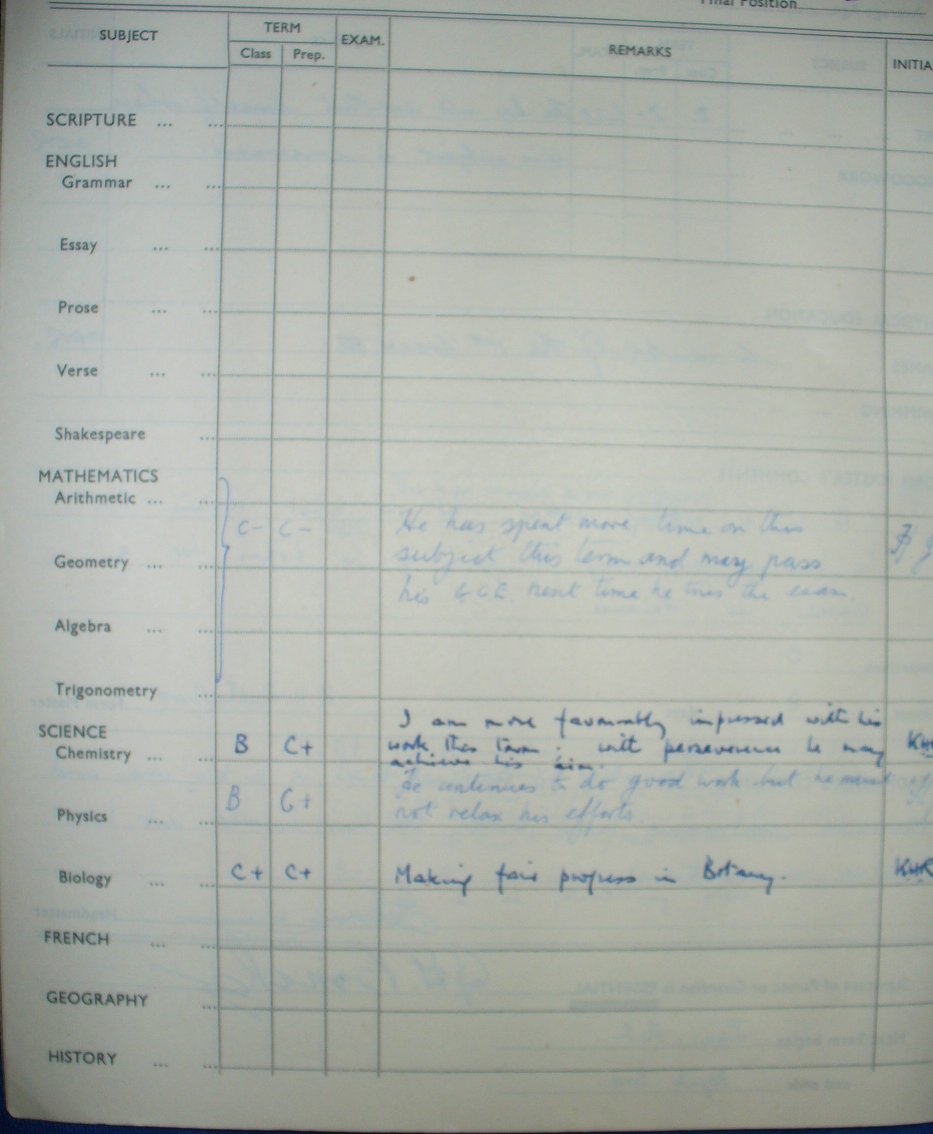 Final Position
SUBJECT TERM EXAM. REMARKS INITIA
Class Prep.
SCRIPTURE ... ...
ENGLISH
Grammar ... ...
Essay ... ...
Prose ... ...
Verse ... ...
Shakespeare ...
MATHEMATICS
Arithmetic ... ...
C- C- He has spent more time on this
subject this term and may pass
Geometry ... ...
his G.C.E. next time he tries the exam
Algebra ... ...
Trigonometry ...
I am more favourably impressed with his
SCIENCE
Chemistry ... ... B C+ work this term: with perseverence he may
achieve his aim.
He continues to do good work but he must
Physics ... ... B C+ not relax his efforts
Biology ... ... C+ C+ Making fair progress in Botany. KWR
FRENCH ... ...
GEOGRAPHY ...
HISTORY ... ...